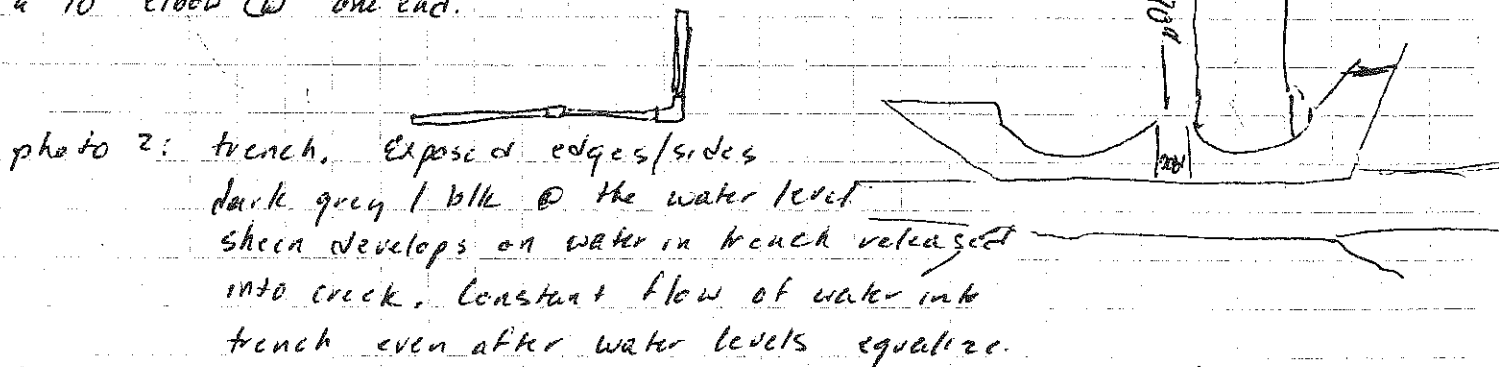 a 10' elbow @ one end.
photo 2: trench. Exposed edges/sides
dark grey / blk @ the water level
sheen develops on water in trench released
into creek. Constant flow of water into
trench even after water levels equalize.